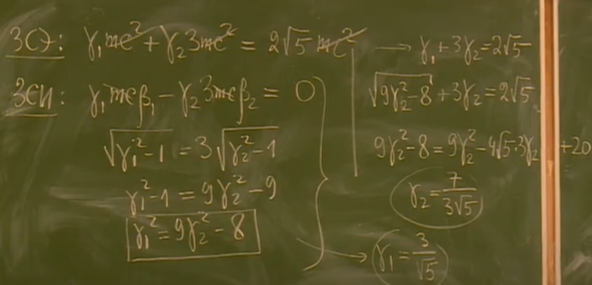 ЗСЭ: γ₁mc² + γ₂3mc² = 2√5 mc² → γ₁+3γ₂=2√5
ЗСИ: γ₁mcβ₁ - γ₂3mcβ₂ = 0
√(γ₁²-1) = 3√(γ₂²-1)
γ₁²-1 = 9γ₂²-9
γ₁² = 9γ₂² - 8
√(9γ₂²-8) + 3γ₂ = 2√5
9γ₂²-8 = 9γ₂² - 4√5·3γ₂ + 20
γ₂ = 7/(3√5)
→ γ₁ = 3/√5